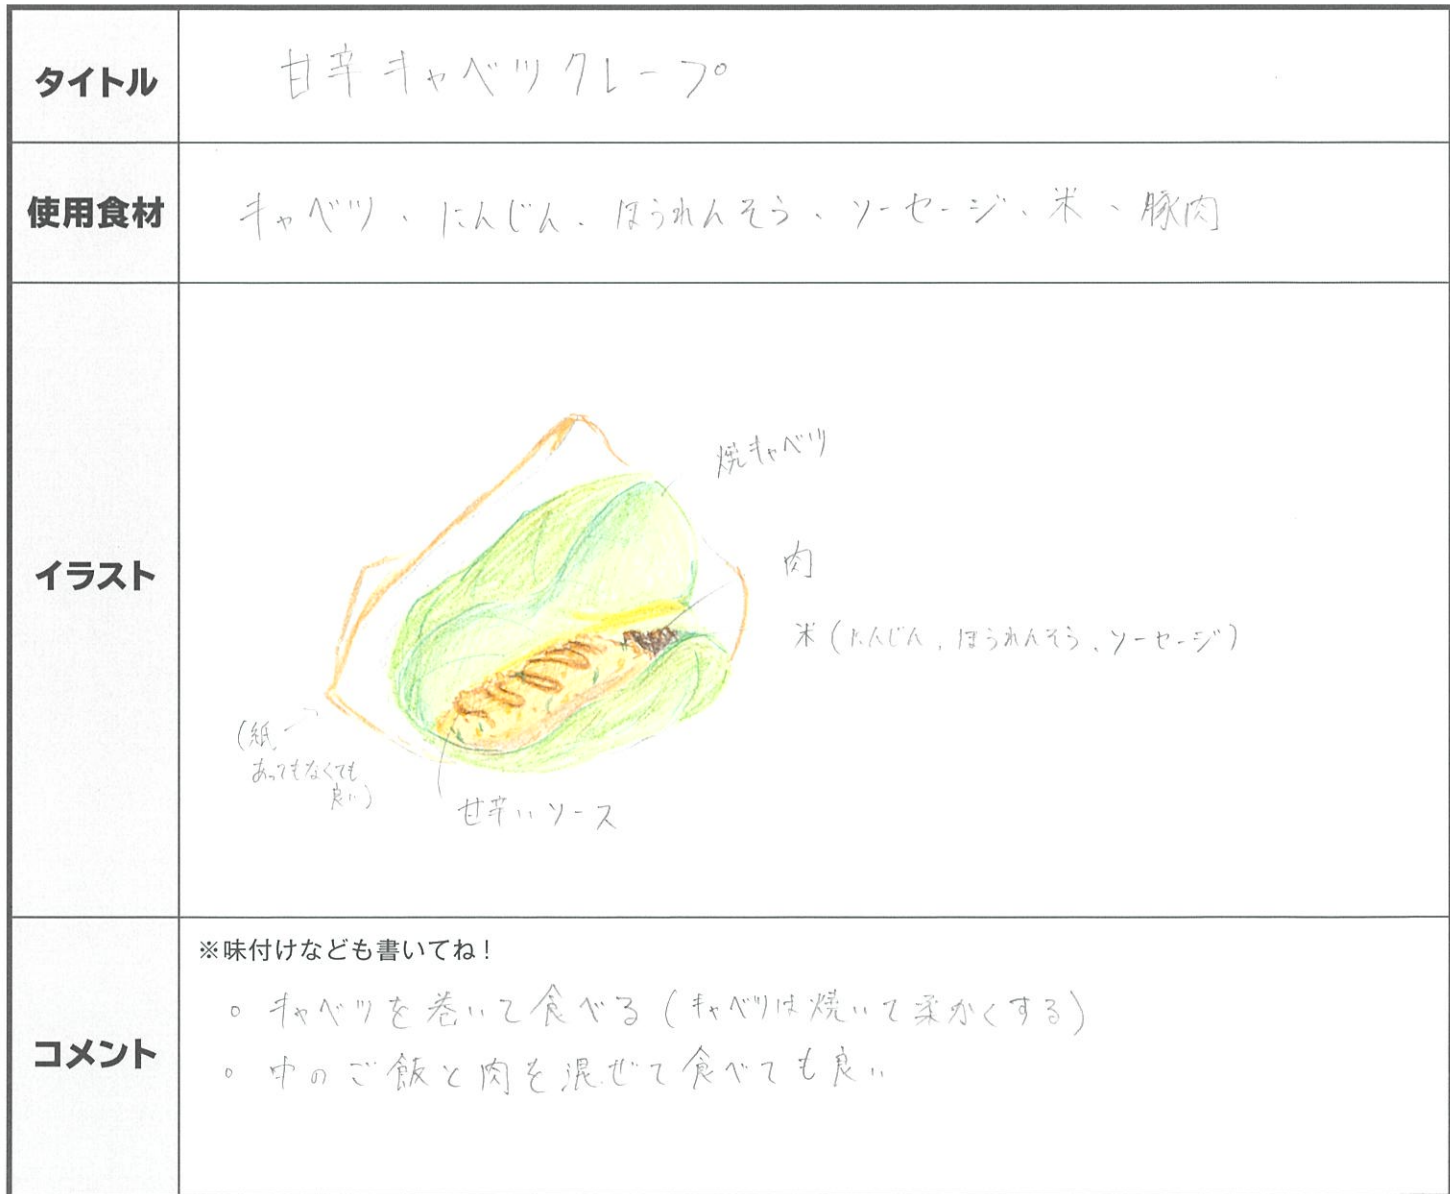 タイトル
甘辛キャベツクレープ
使用食材
キャベツ、にんじん、ほうれんそう、ソーセージ、米、豚肉
イラスト
焼キャベツ
肉
米(にんじん、ほうれんそう、ソーセージ)
(紙→
あってもなくても
良い)
甘辛いソース
コメント
※味付けなども書いてね!
○ キャベツを巻いて食べる(キャベツは焼いて柔かくする)
○ 中のご飯と肉を混ぜて食べても良い